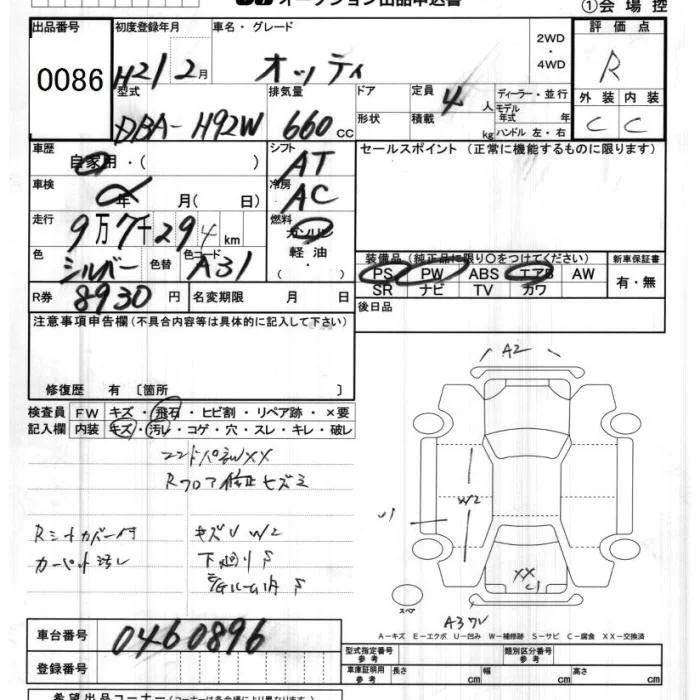 オークション出品申込書
①会場控
出品番号 初度登録年月 車名・グレード 評価点
0086 H21 2月 オッティ 2WD・4WD R
型式 排気量 ドア 定員 ディーラー・並行 外装 内装
DBA-H92W 660 CC 形状 積載 4人 kg モデル年式 年 ハンドル 左・右 C C
車歴 シフト セールスポイント(正常に機能するものに限ります)
自家用・( ) AT
車検 冷房
年 月( 日) AC
走行 燃料
9万7千294km ガソリン
色 色替 色コード 軽油
シルバー A31 ・( )
装備品(純正品に限り○をつけてください) 新車保証書
PS PW ABS エアB AW 有・無
SR ナビ TV カワ
R券 8930円 名変期限 月 日
後日品
注意事項申告欄(不具合内容等は具体的に記入して下さい)
修復歴 有 〔箇所 〕
検査員 FW キズ・飛石・ヒビ割・リペア跡・×要
記入欄 内装 キズ・汚レ・コゲ・穴・スレ・キレ・破レ
A2
XX
Rフロア修正
W2
U1
Rシートカバー付 キズU W2
カーペット汚レ 下廻りS
S
XX
U1
スペア
A3
A-キズ E-エクボ U-凹み W-補修跡 S-サビ C-腐食 XX-交換済
車台番号 0460896
登録番号
型式指定番号 参考 類別区分番号 参考
車庫証明用 参考 長さ cm 幅 cm 高さ cm
希望出品コーナー(コーナーは各会場により異なります)